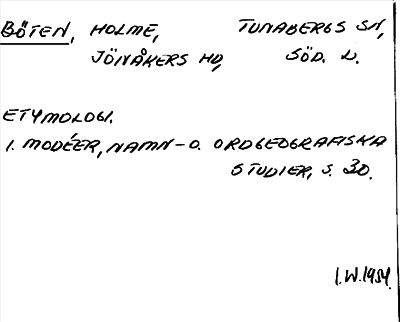 BÖTEN, HOLME, TUNABERGS SN,
JÖNÅKERS HD, SÖD. L.
ETYMOLOGI.
I. MODÉER, NAMN- O. ORDGEOGRAFISKA
STUDIER, S. 30.
I.W.1954.